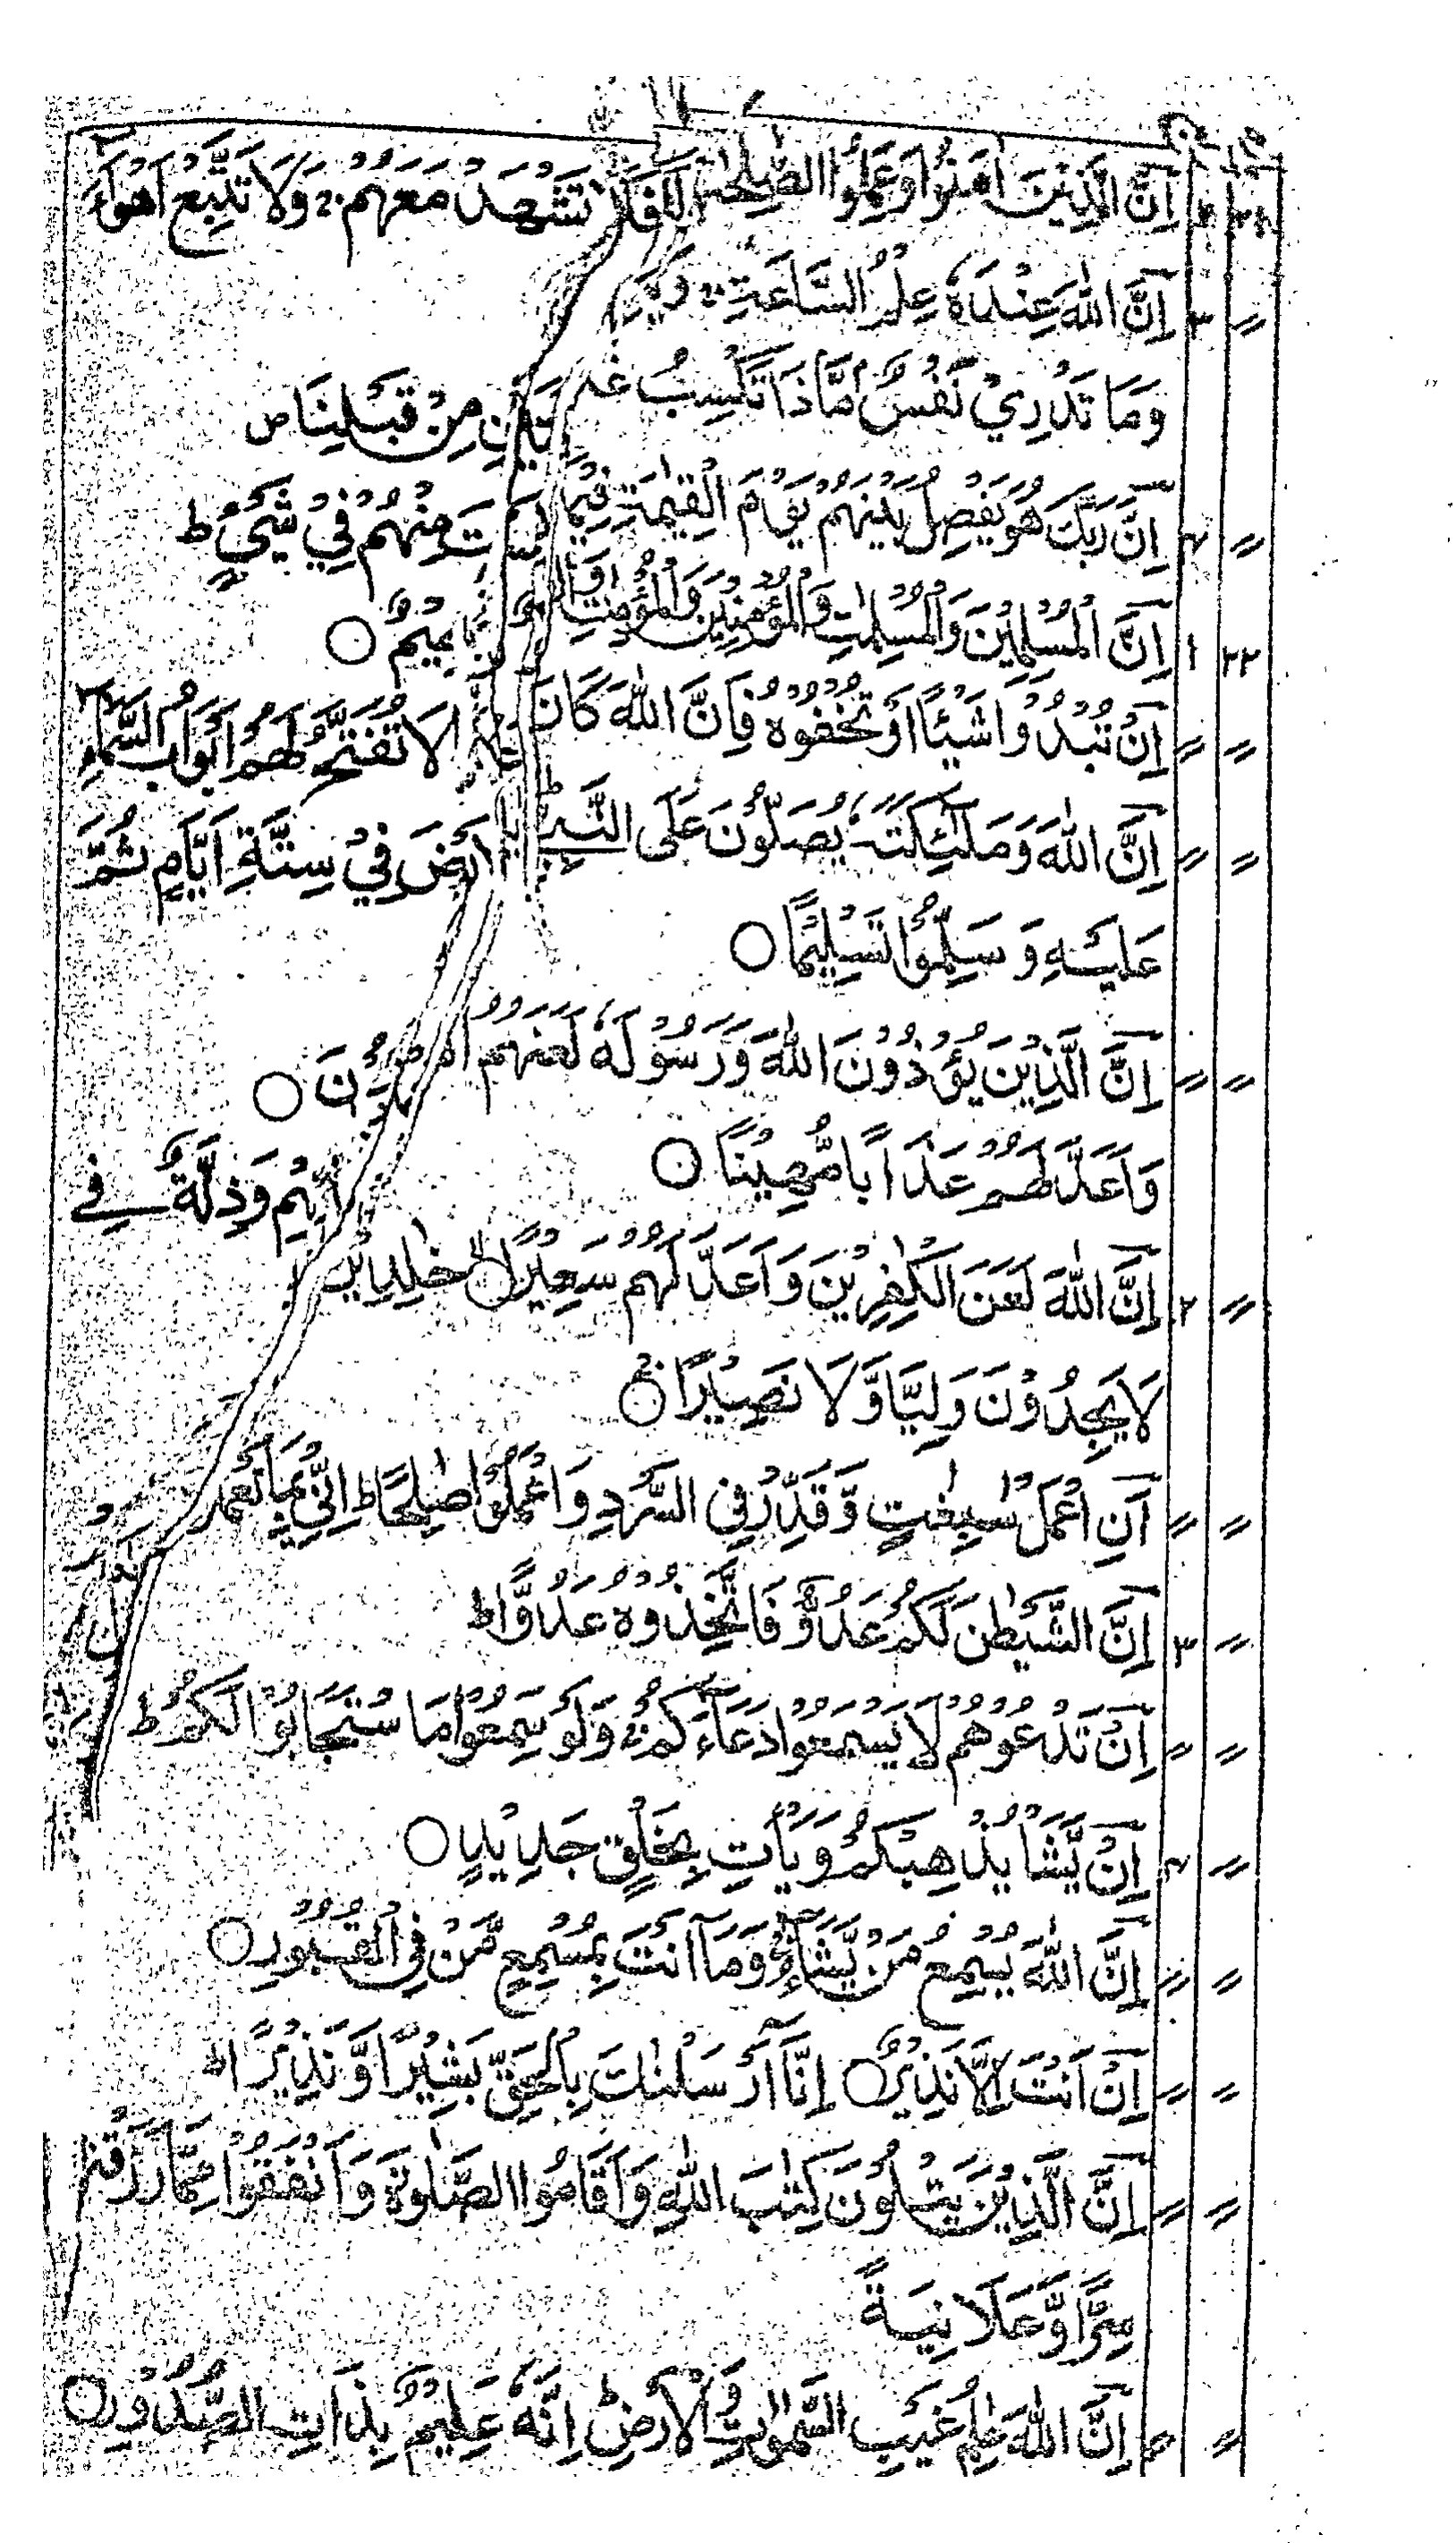 اِنَّ الَّذِيْنَ اٰمَنُوْا وَعَمِلُوا الصّٰلِحٰتِ فَلَا تَشْهَدْ مَعَهُمْ ۚ وَلَا تَتَّبِعْ اَهْوَآءَ
〃 ٣ اِنَّ اللّٰهَ عِنْدَهٗ عِلْمُ السَّاعَةِ ۚ
وَمَا تَدْرِيْ نَفْسٌ مَّاذَا تَكْسِبُ مِنْ قَبْلِنَا ص
〃 ٤ اِنَّ رَبَّكَ هُوَ يَفْصِلُ بَيْنَهُمْ يَوْمَ الْقِيٰمَةِ فِيْمَا لَسْتَ مِنْهُمْ فِيْ شَيْءٍ ط
٢٢ ١ اِنَّ الْمُسْلِمِيْنَ وَالْمُسْلِمٰتِ وَالْمُؤْمِنِيْنَ وَالْمُؤْمِنٰتِ
〃 〃 اِنْ تُبْدُوْا شَيْئًا اَوْ تُخْفُوْهُ فَاِنَّ اللّٰهَ كَانَ لَا تُفَتَّحُ لَهُمْ اَبْوَابُ السَّمَآءِ
〃 〃 اِنَّ اللّٰهَ وَمَلٰٓئِكَتَهٗ يُصَلُّوْنَ عَلَى النَّبِيِّ ط فِيْ سِتَّةِ اَيَّامٍ ثُمَّ
عَلَيْهِ وَ سَلِّمُوْا تَسْلِيْمًا ○
〃 〃 اِنَّ الَّذِيْنَ يُؤْذُوْنَ اللّٰهَ وَرَسُوْلَهٗ لَعَنَهُمُ
وَاَعَدَّ لَهُمْ عَذَابًا مُّهِيْنًا ○ وَذِلَّةٌ فِي
〃 ٢ اِنَّ اللّٰهَ لَعَنَ الْكٰفِرِيْنَ وَاَعَدَّ لَهُمْ سَعِيْرًا ○ خٰلِدِيْنَ
لَا يَجِدُوْنَ وَلِيًّا وَّلَا نَصِيْرًا ○
〃 〃 اَنِ اعْمَلْ سٰبِغٰتٍ وَّقَدِّرْ فِي السَّرْدِ وَاعْمَلُوْا صٰلِحًا ط اِنِّيْ بِمَا
〃 ٣ اِنَّ الشَّيْطٰنَ لَكُمْ عَدُوٌّ فَاتَّخِذُوْهُ عَدُوًّا ط
〃 〃 اِنْ تَدْعُوْهُمْ لَا يَسْمَعُوْا دُعَآءَكُمْ ۚ وَلَوْ سَمِعُوْا مَا سْتَجَابُوْا لَكُمْ ط
〃 ٤ اِنْ يَّشَاْ يُذْهِبْكُمْ وَيَاْتِ بِخَلْقٍ جَدِيْدٍ ○
〃 〃 اِنَّ اللّٰهَ يُسْمِعُ مَنْ يَّشَآءُ ۚ وَمَآ اَنْتَ بِمُسْمِعٍ مَّنْ فِي الْقُبُوْرِ ○
〃 〃 اِنْ اَنْتَ اِلَّا نَذِيْرٌ ○ اِنَّآ اَرْسَلْنٰكَ بِالْحَقِّ بَشِيْرًا وَّنَذِيْرًا ط
〃 〃 اِنَّ الَّذِيْنَ يَتْلُوْنَ كِتٰبَ اللّٰهِ وَاَقَامُوا الصَّلٰوةَ وَاَنْفَقُوْا مِمَّا
سِرًّا وَّعَلَانِيَةً
〃 ٥ اِنَّ اللّٰهَ عٰلِمُ غَيْبِ السَّمٰوٰتِ وَالْاَرْضِ ط اِنَّهٗ عَلِيْمٌ بِذَاتِ الصُّدُوْرِ ○